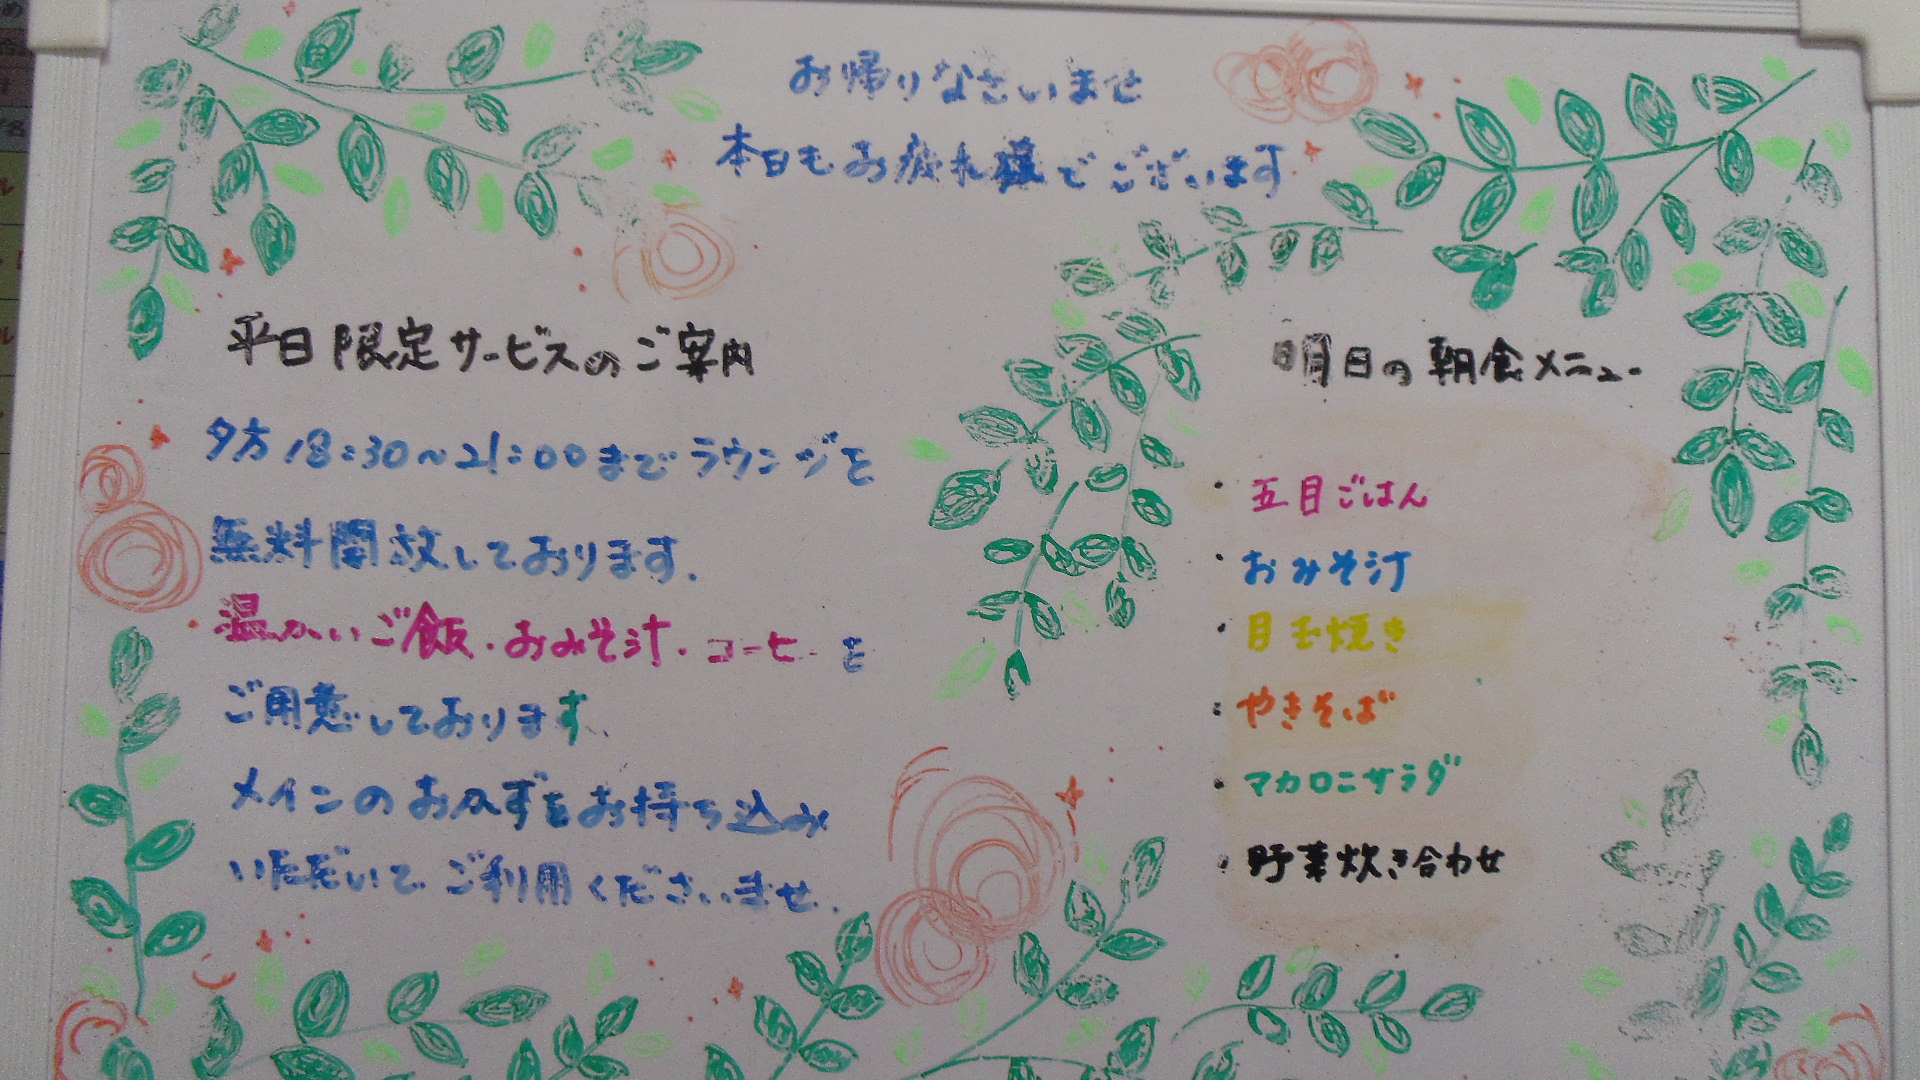 お帰りなさいませ
本日もお疲れ様でございます
平日限定サービスのご案内
夕方18:30～21:00までラウンジを
無料開放しております.
温かいご飯・おみそ汁・コーヒーを
ご用意しております.
メインのおかずをお持ち込み
いただいてご利用くださいませ.
明日の朝食メニュー
・五目ごはん
・おみそ汁
・目玉焼き
・やきそば
・マカロニサラダ
・野菜炊き合わせ